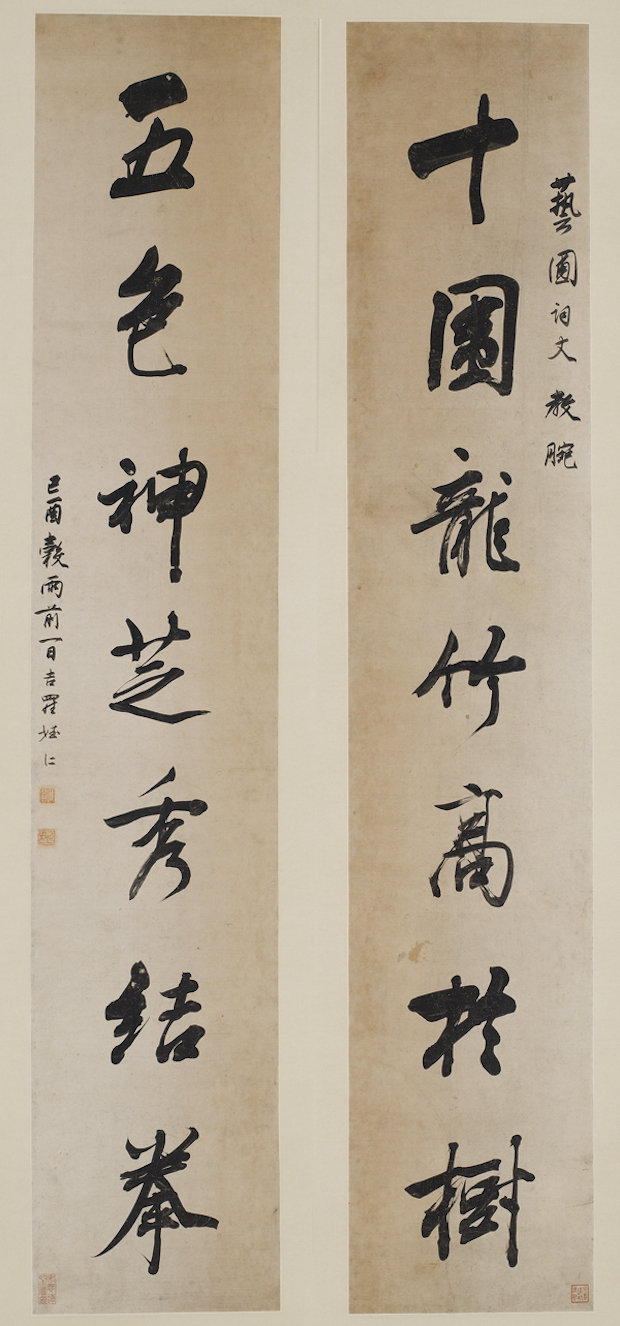 藝圃詞丈 教腕
十圍龍竹高於樹
五色神芝秀結拳
己酉穀雨前一日吉羅仁